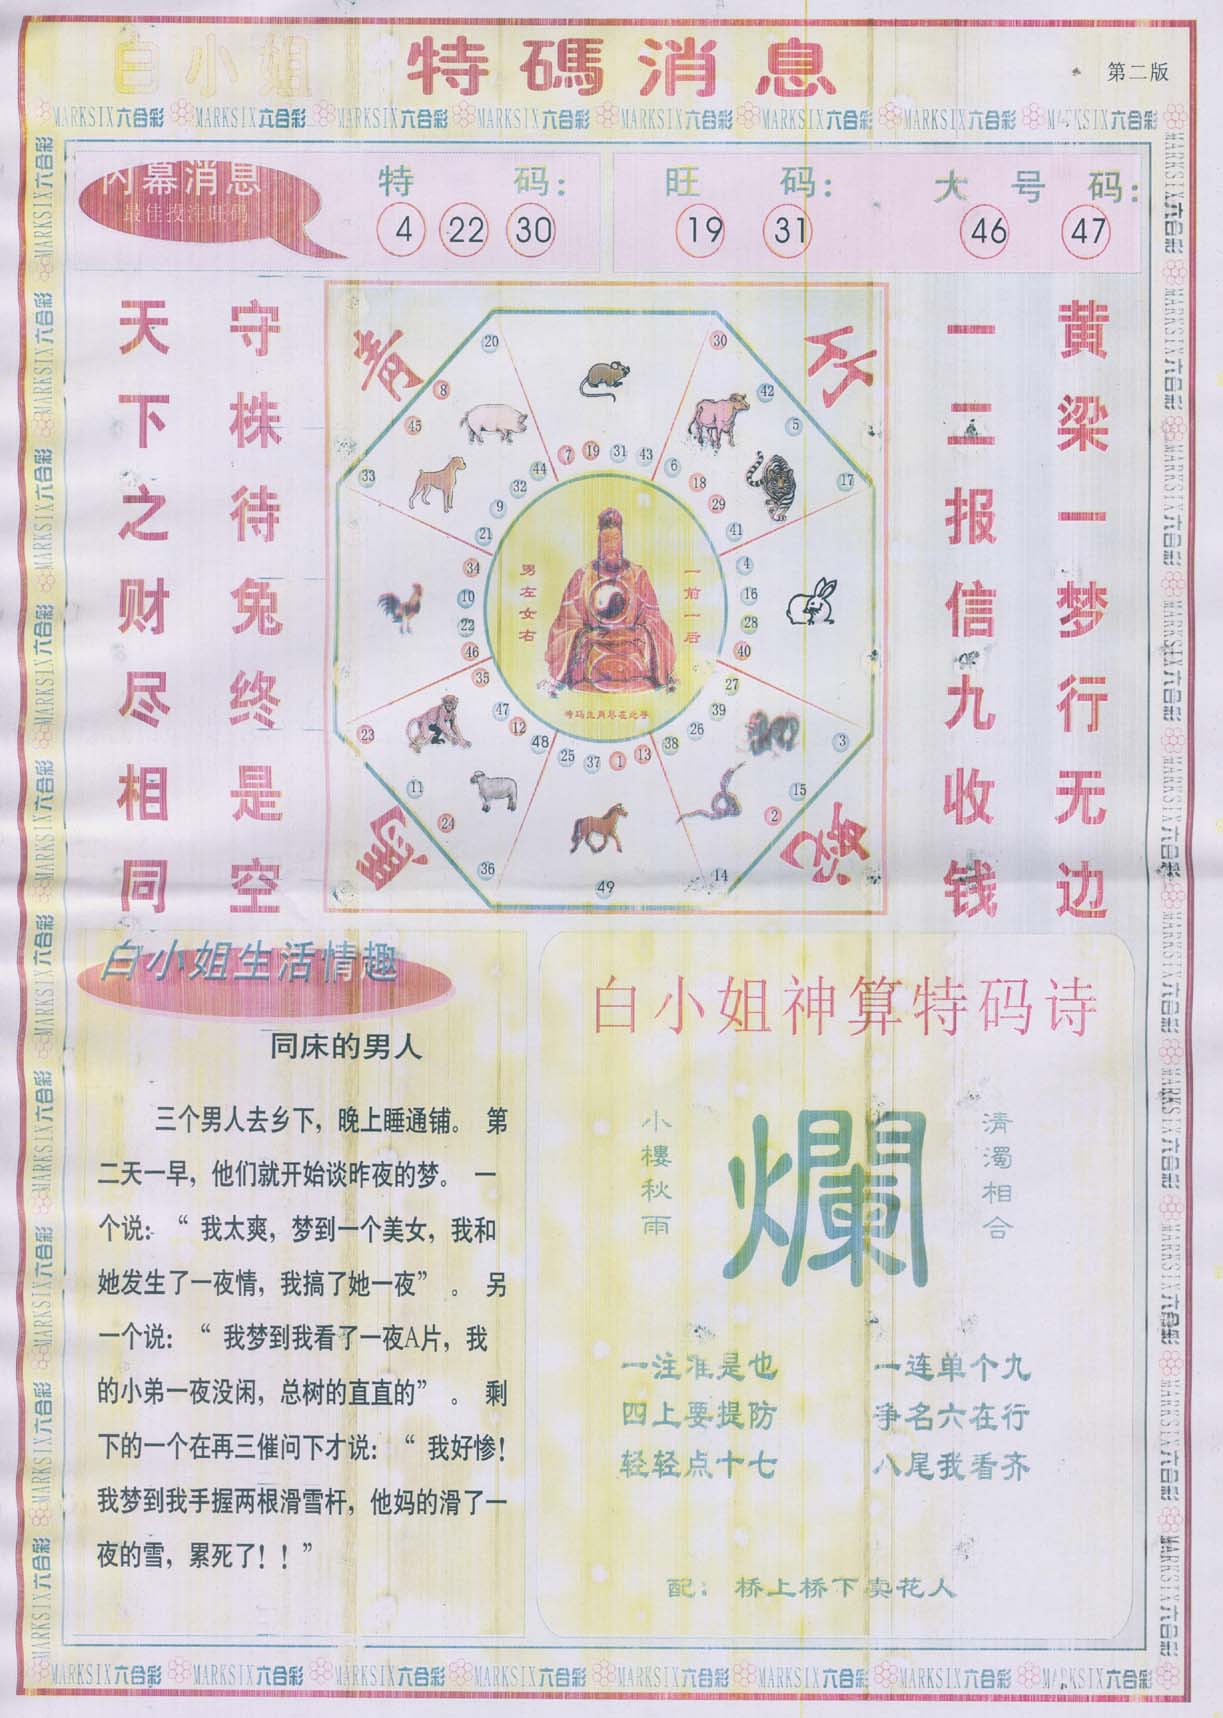 白小姐 特碼消息
第二版
MARKSIX六合彩 MARKSIX六合彩 MARKSIX六合彩 MARKSIX六合彩 MARKSIX六合彩 MARKSIX六合彩 MARKSIX六合彩 MARKSIX六合彩
内幕消息
最佳投注旺码
特 码:
4 22 30
旺 码:
19 31
大 号 码:
46 47
黄梁一梦行无边
一二报信九收钱
守株待兔终是空
天下之财尽相同
20 30
8 42
45 5
33 17
7 19 31 43
44 6
32 18
9 29
21 41
34 4
10 16
22 28
46 40
35 27
47 39
12 26
48 38
25 37 1 13
23 3
11 15
24 2
36 14
49
男左女右
一前一后
特码生肖尽在此寻
白小姐生活情趣
同床的男人
三个男人去乡下，晚上睡通铺。 第
二天一早，他们就开始谈昨夜的梦。 一
个说：“ 我太爽，梦到一个美女，我和
她发生了一夜情，我搞了她一夜” 。 另
一个说：“ 我梦到我看了一夜A片，我
的小弟一夜没闲，总树的直直的” 。 剩
下的一个在再三催问下才说：“ 我好惨！
我梦到我手握两根滑雪杆，他妈的滑了一
夜的雪，累死了！！”
白小姐神算特码诗
清濁相合
爛
小樓秋雨
一注准是也 一连单个九
四上要提防 争名六在行
轻轻点十七 八尾我看齐
配：桥上桥下卖花人
MARKSIX六合彩 MARKSIX六合彩 MARKSIX六合彩 MARKSIX六合彩 MARKSIX六合彩 MARKSIX六合彩 MARKSIX六合彩 MARKSIX六合彩